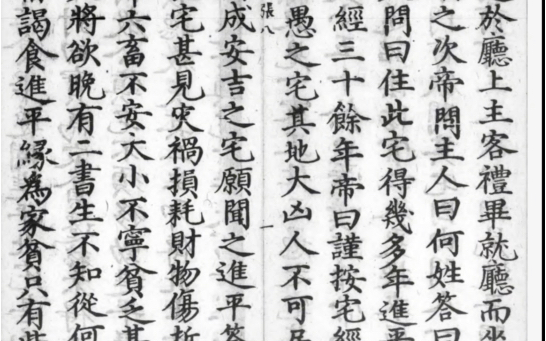 於廳上主客禮畢就廳而坐
之次帝問主人曰何姓答曰
問曰住此宅得幾多年進平
經三十餘年帝曰謹按宅經
愚之宅其地大凶人不可居
張八
一
成安吉之宅願聞之進平答
宅甚見灾禍損耗財物傷折
六畜不安大小不寧貧乏甚
將欲晚有二書生不知從何
謁食進平緣為家貧只有